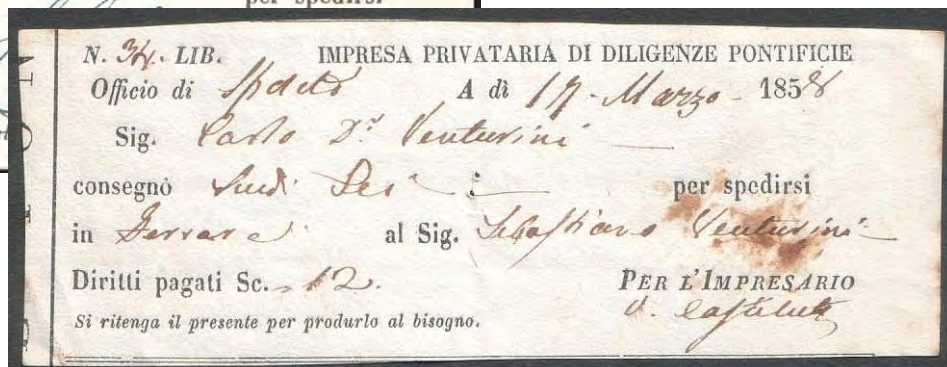 per spedirsi
N. 34. LIB. IMPRESA PRIVATARIA DI DILIGENZE PONTIFICIE
Officio di Spoleto A dì 17. Marzo - 1858
Sig. Carlo Dr Venturini
consegnò Scudi Sei per spedirsi
in Ferrara al Sig. Sebastiano Venturini
Diritti pagati Sc. -12.
PER L'IMPRESARIO
Si ritenga il presente per produrlo al bisogno.